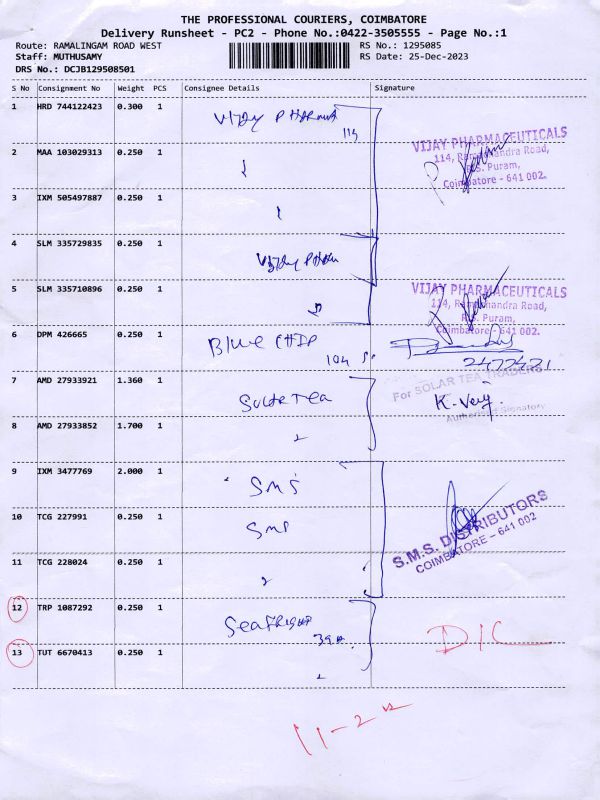 THE PROFESSIONAL COURIERS, COIMBATORE
Delivery Runsheet - PC2 - Phone No.:0422-3505555 - Page No.:1
Route: RAMALINGAM ROAD WEST RS No.: 1295085
Staff: MUTHUSAMY RS Date: 25-Dec-2023
DRS No.: DCJB129508501
S No Consignment No Weight PCS Consignee Details Signature
1 HRD 744122423 0.300 1 Vijay Pharma 114
VIJAY PHARMACEUTICALS
114, Ramachandra Road,
R.S. Puram,
Coimbatore - 641 002.
2 MAA 103029313 0.250 1
3 IXM 505497887 0.250 1
4 SLM 335729835 0.250 1 Vijay
5 SLM 335710896 0.250 1
VIJAY PHARMACEUTICALS
114, Ramachandra Road,
R.S. Puram,
Coimbatore - 641 002.
6 DPM 426665 0.250 1 Blue CHIP 104
2472421
7 AMD 27933921 1.360 1 Solar Tea
For SOLAR TEA TRADERS
K. Very
Authorised Signatory
8 AMD 27933852 1.700 1
9 IXM 3477769 2.000 1 SMS
10 TCG 227991 0.250 1 SMS
S.M.S. DISTRIBUTORS
COIMBATORE - 641 002
11 TCG 228024 0.250 1
12 TRP 1087292 0.250 1 Seafright
D/C
13 TUT 6670413 0.250 1
11-2